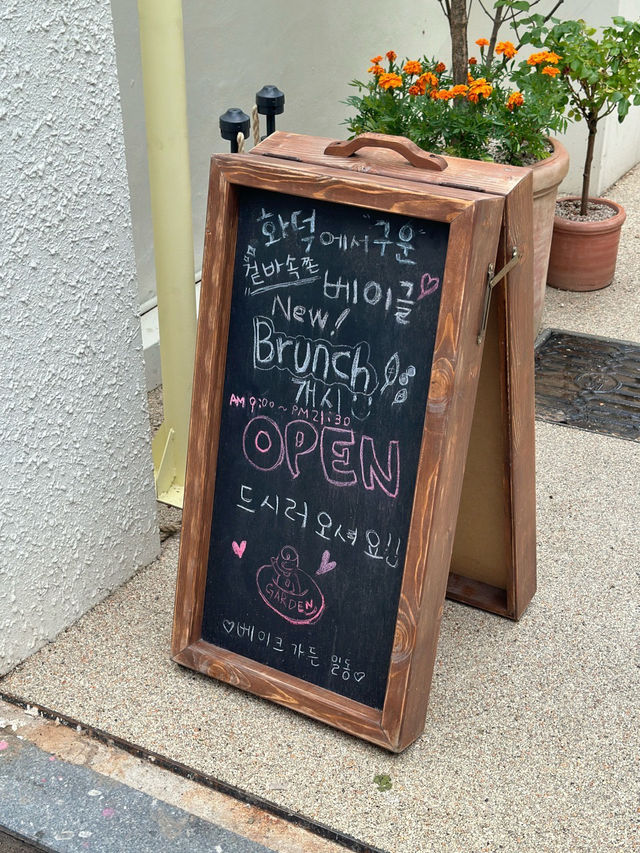 화덕에서 "구운"
"겉바속쫀" 베이글
New!
Brunch
개시
AM 9:00 ~ PM 21:30
OPEN
드시러 오셔요!!
GARDEN
♡베이크 가든 일동♡